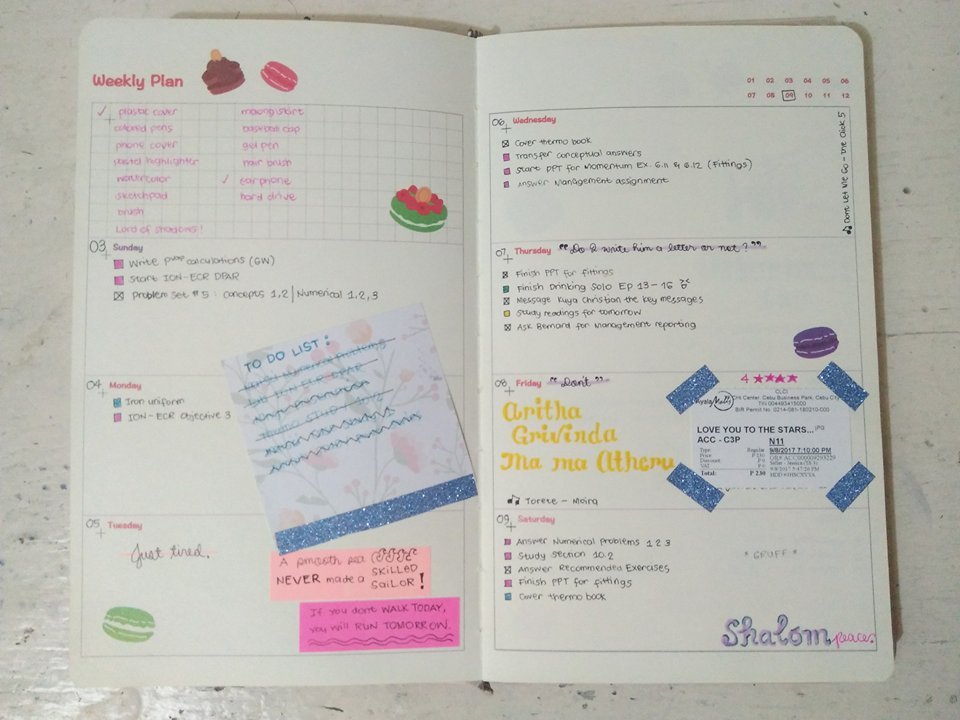 Weekly Plan
plastic cover
colored pens
phone cover
pastel highlighter
watercolor
sketchpad
brush
Lord of shadows!
baseball cap
gel pen
hair brush
earphone
hard drive
03 Sunday
Write pump calculations (GW)
Start ION-ECR DPAR
Problem Set #5: concepts 1,2 | Numerical 1,2,3
TO DO LIST:
04 Monday
Iron uniform
ION-ECR Objective 3
05 Tuesday
Just tired.
A smooth sea
NEVER made a SKILLED SAILOR!
If you don't WALK TODAY,
you will RUN TOMORROW.
01 02 03 04 05 06
07 08 09 10 11 12
06 Wednesday
Cover thermo book
Transfer conceptual answers
Start PPT for Momentum Ex. 6.11 & 6.12 (Fittings)
Answer Management assignment
Don't Let Me Go - The Click 5
07 Thursday "Do I write him a letter or not?"
Finish PPT for fittings
Finish Drinking Solo Ep 13-16
Message Kuya Christian the key messages
Study readings for tomorrow
Ask Bernard for Management reporting
08 Friday "Don't"
Aritha
Grivinda
Ma ma
Torete - Moira
4 ★★★★
Ayala Malls
CLCI
CHI Center, Cebu Business Park, Cebu City
TIN 004493415000
BIR Permit No. 0214-081-180210-000
LOVE YOU TO THE STARS... |PG
ACC - C3P N11
Type: Regular 9/8/2017 7:10:00 PM
Price P 230
Discount: P 0
VAT P 0
Total: P 230
09 Saturday
Answer Numerical Problems 1 2 3
Study section 10.2
Answer Recommended Exercises
Finish PPT for fittings
Cover thermo book
*GRUFF*
Shalom, peace.